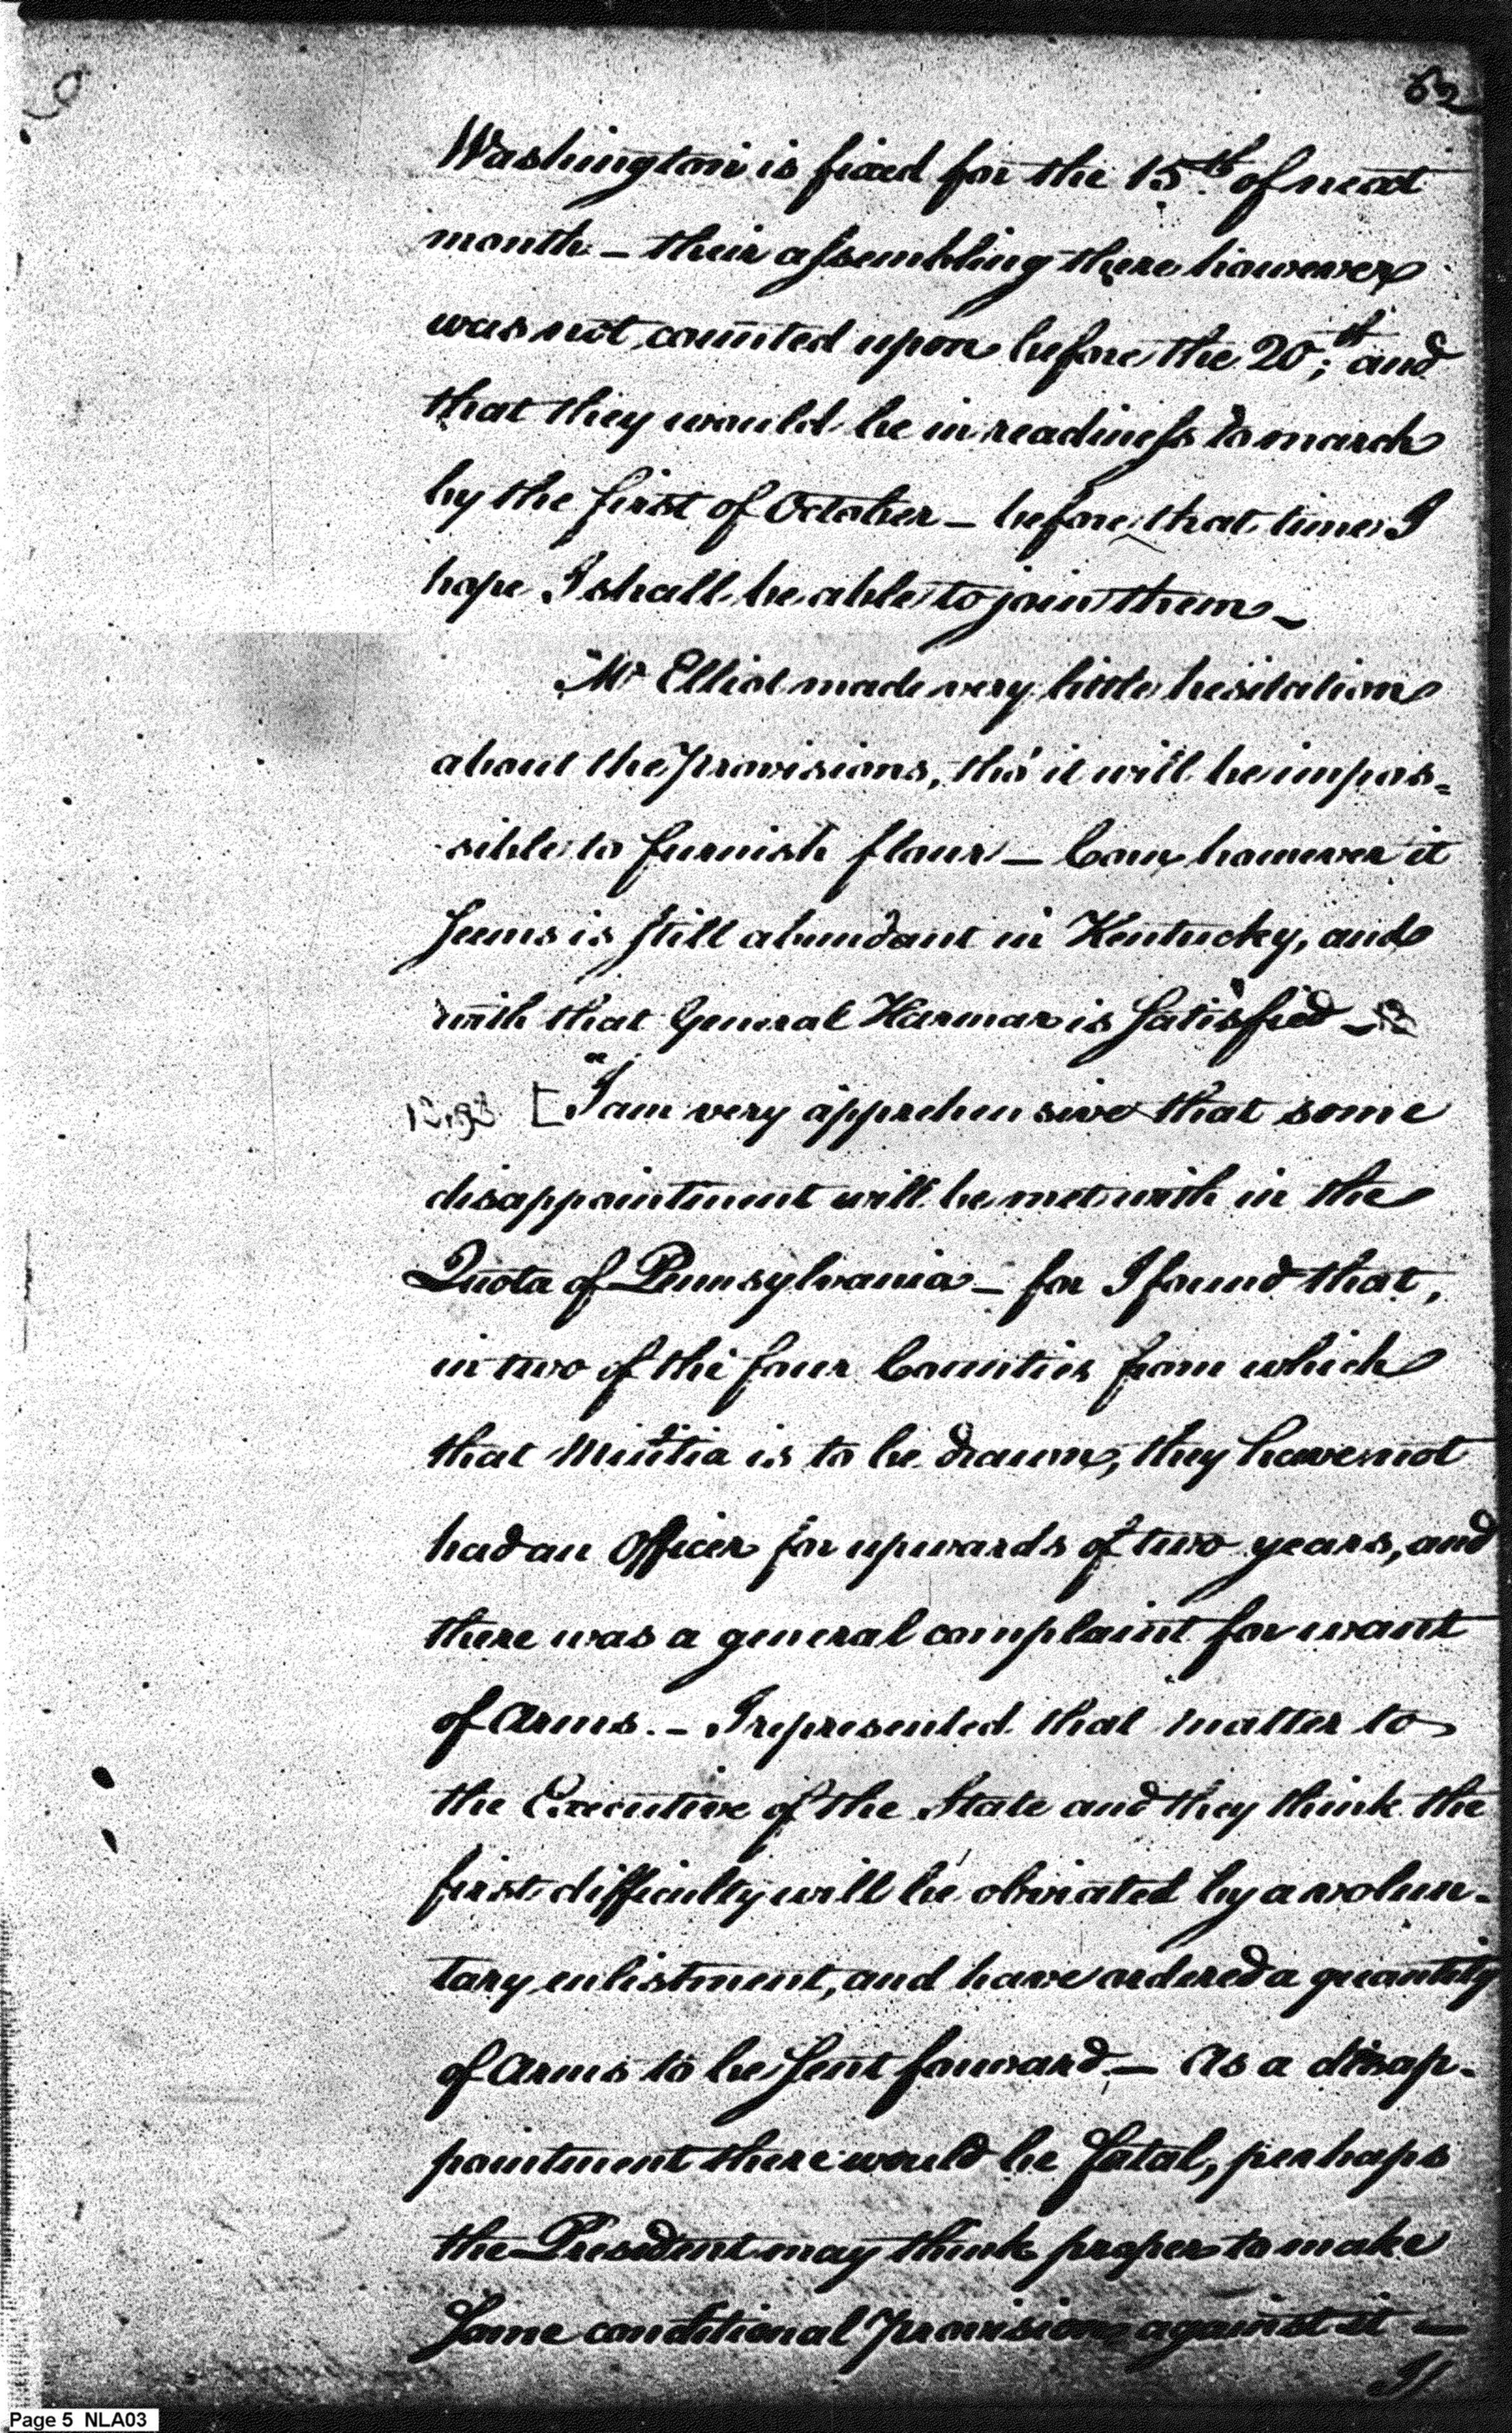 62
Washington is fixed for the 15th of next
month – their assembling there however
was not counted upon before the 20th; and
that they would be in readiness to march
by the first of October – before that time I
hope I shall be able to join them –
Mr Elliot made very little hesitation
about the provisions, tho' it will be impos=
sible to furnish flour – Corn however it
seems is still abundant in Kentucky, and
with that General Harmar is satisfied –
[“I am very apprehensive that some
disappointment will be met with in the
Quota of Pennsylvania – for I found that,
in two of the four Counties from which
that Militia is to be drawn, they have not
had an Officer for upwards of two years, and
there was a general complaint for want
of Arms. – I represented that matter to
the Executive of the State and they think the
first difficulty will be obviated by a volun-
tary enlistment, and have ordered a quantity
of Arms to be sent forward – As a disap-
pointment there would be fatal, perhaps
the President may think proper to make
some conditional provision against it –
Page 5 NLA03